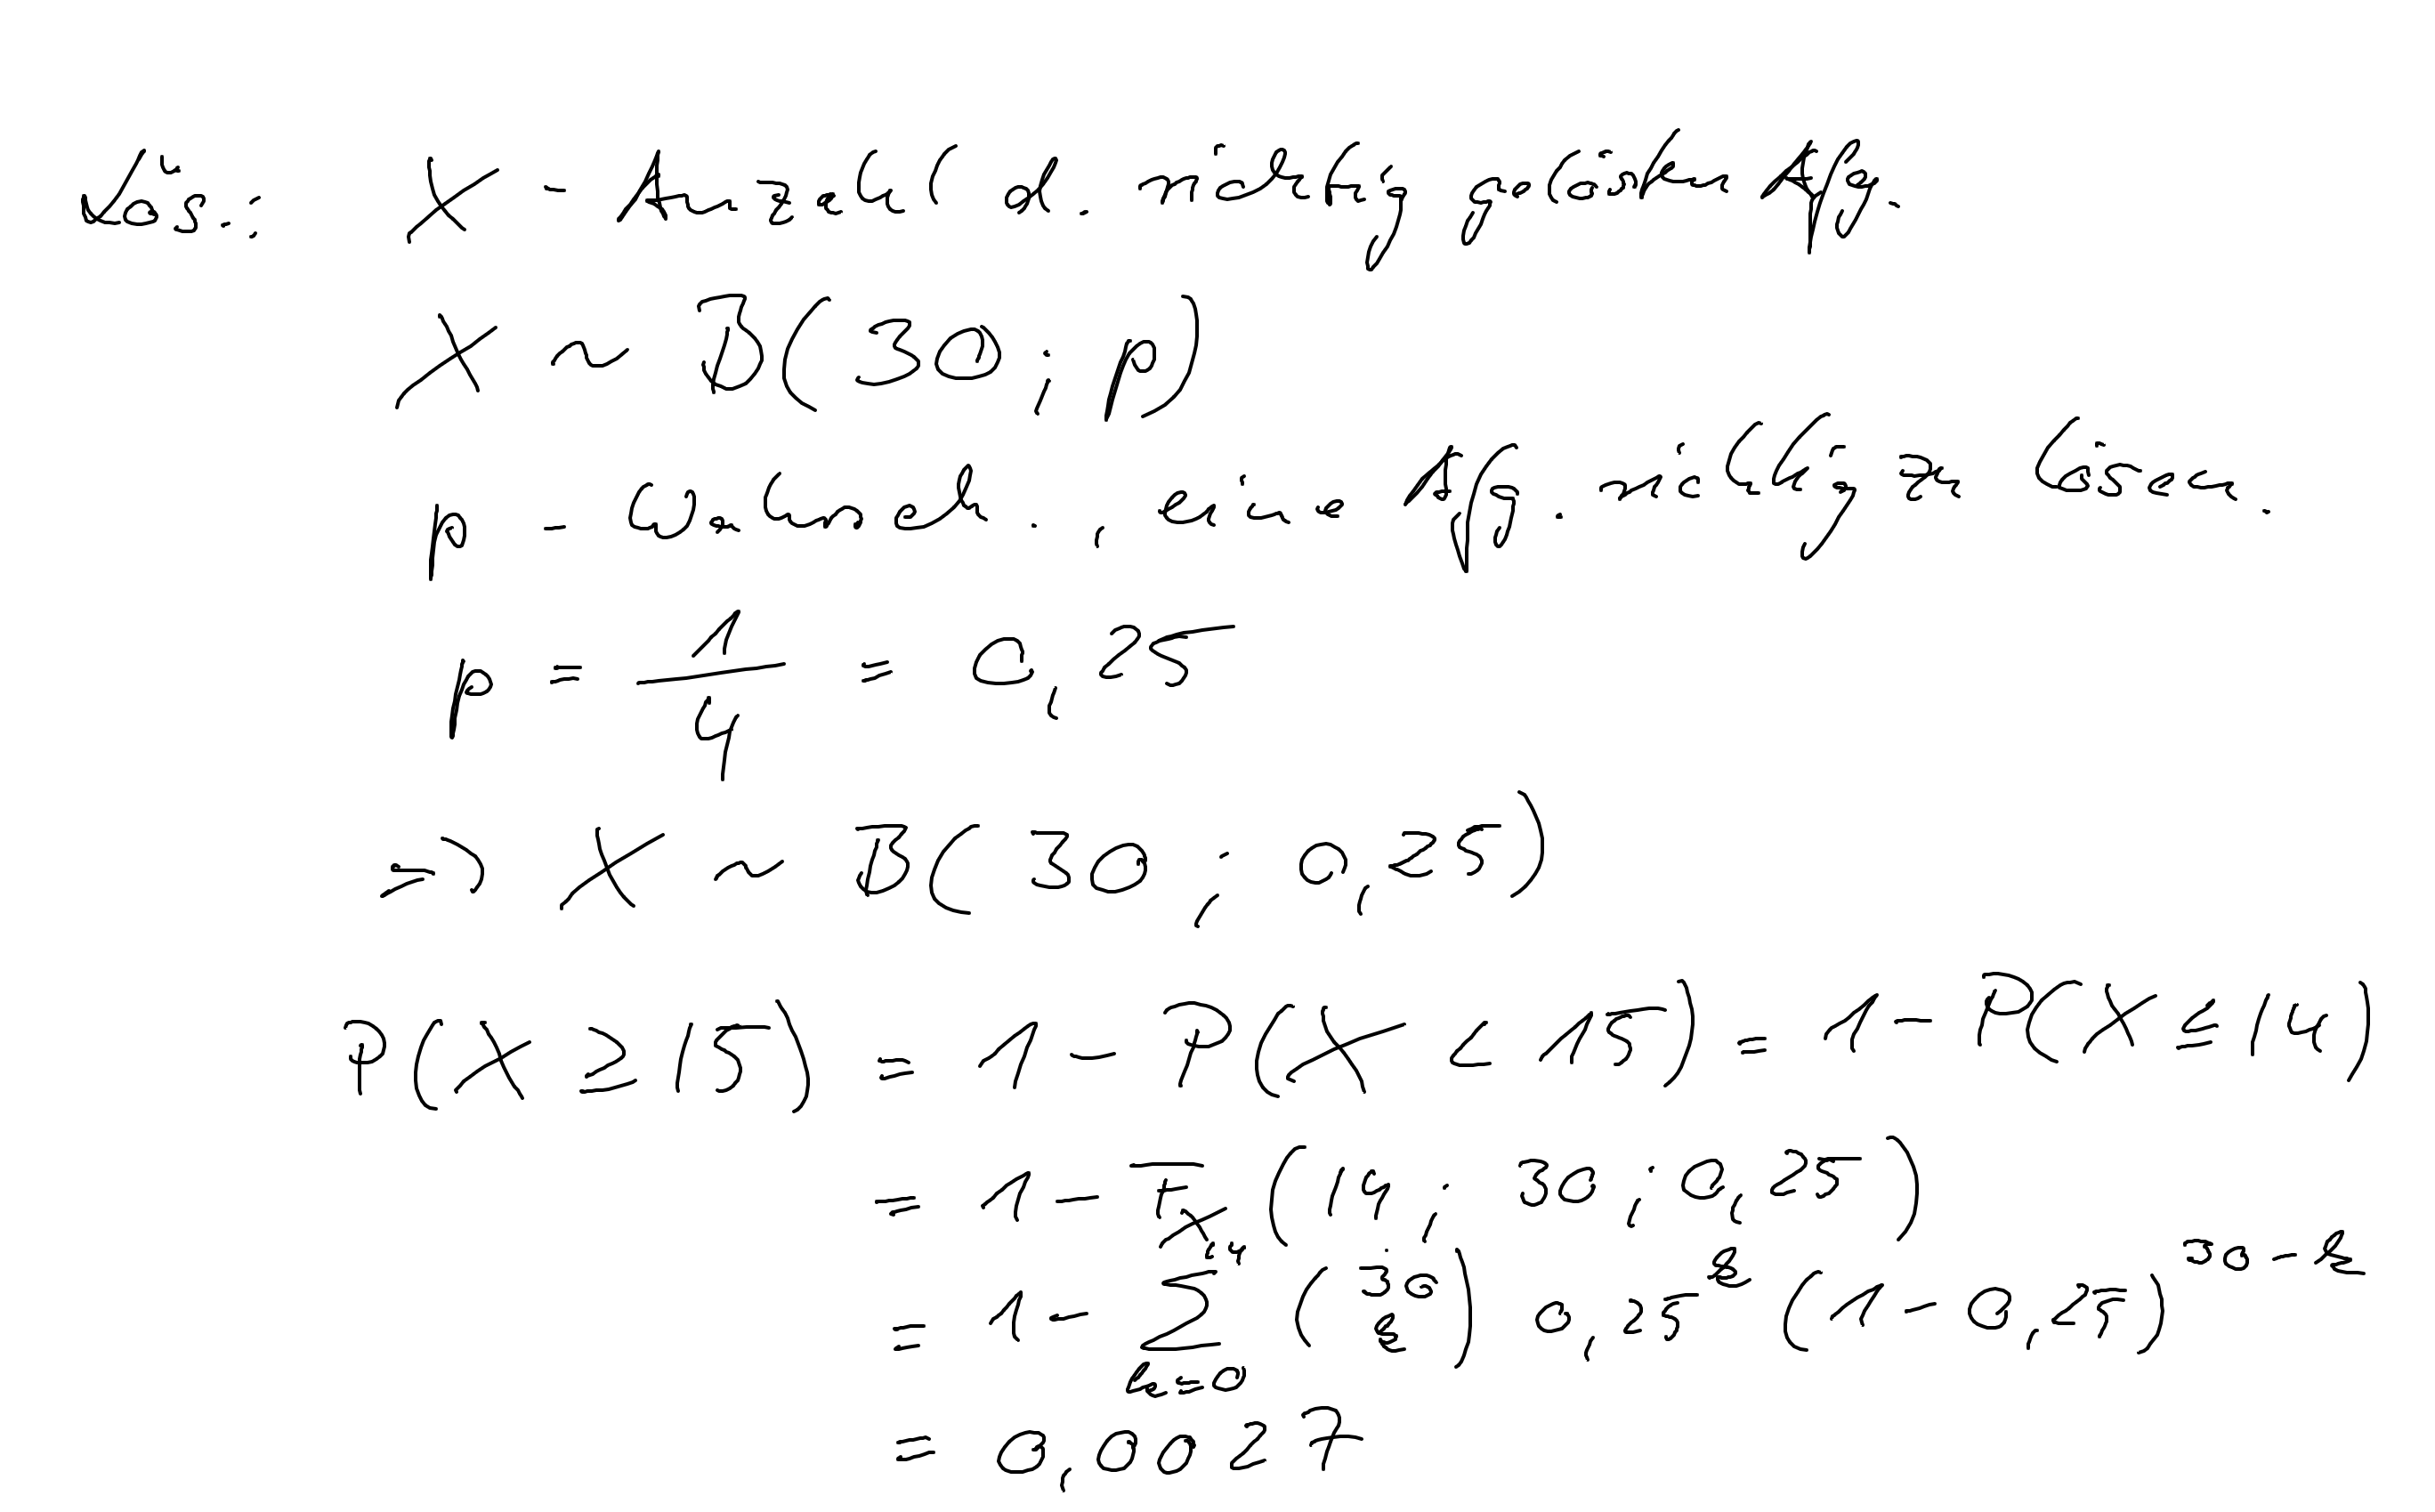 Lös.: X – Anzahl d. richtig gelösten Afg.
X ~ B(30; p)
p – Wahrsch., eine Afg. zu lösen.
p = 1/4 = 0,25
=> X ~ B(30; 0,25)
P(X ≥ 15) = 1 - P(X < 15) = 1 - P(X ≤ 14)
= 1 - F_X (14; 30; 0,25)
= 1 - ∑_{k=0}^{14} (30 k) 0,25^k (1 - 0,25)^{30-k}
= 0,0027